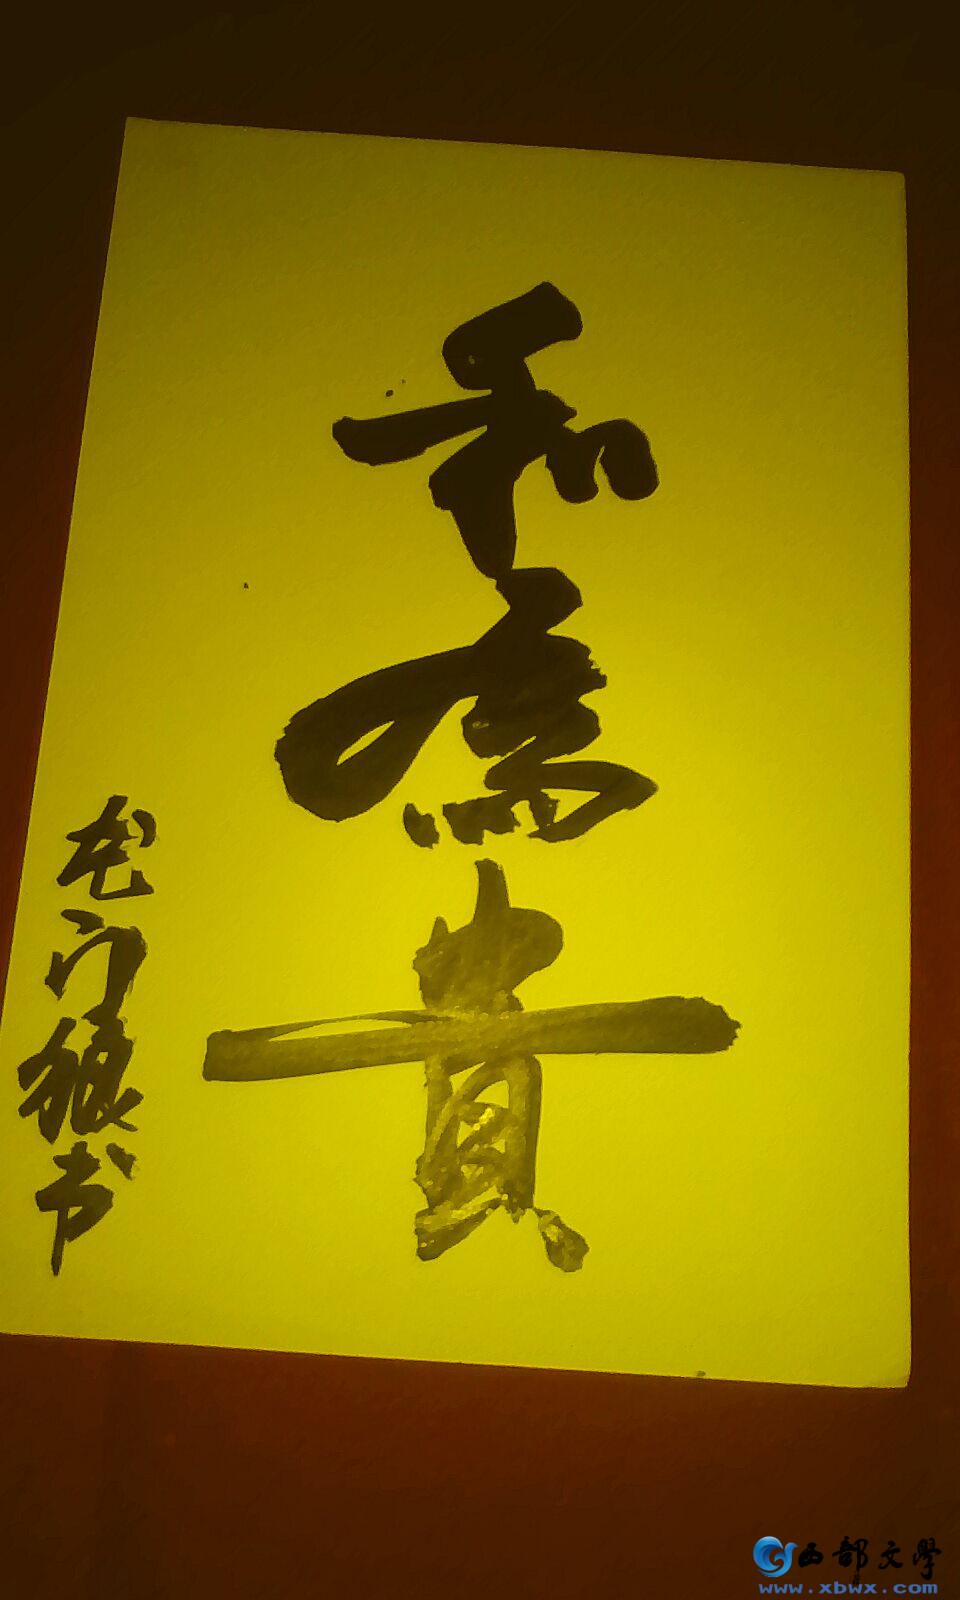 和為貴
龙门狼书
西部文學
www.xbwx.com